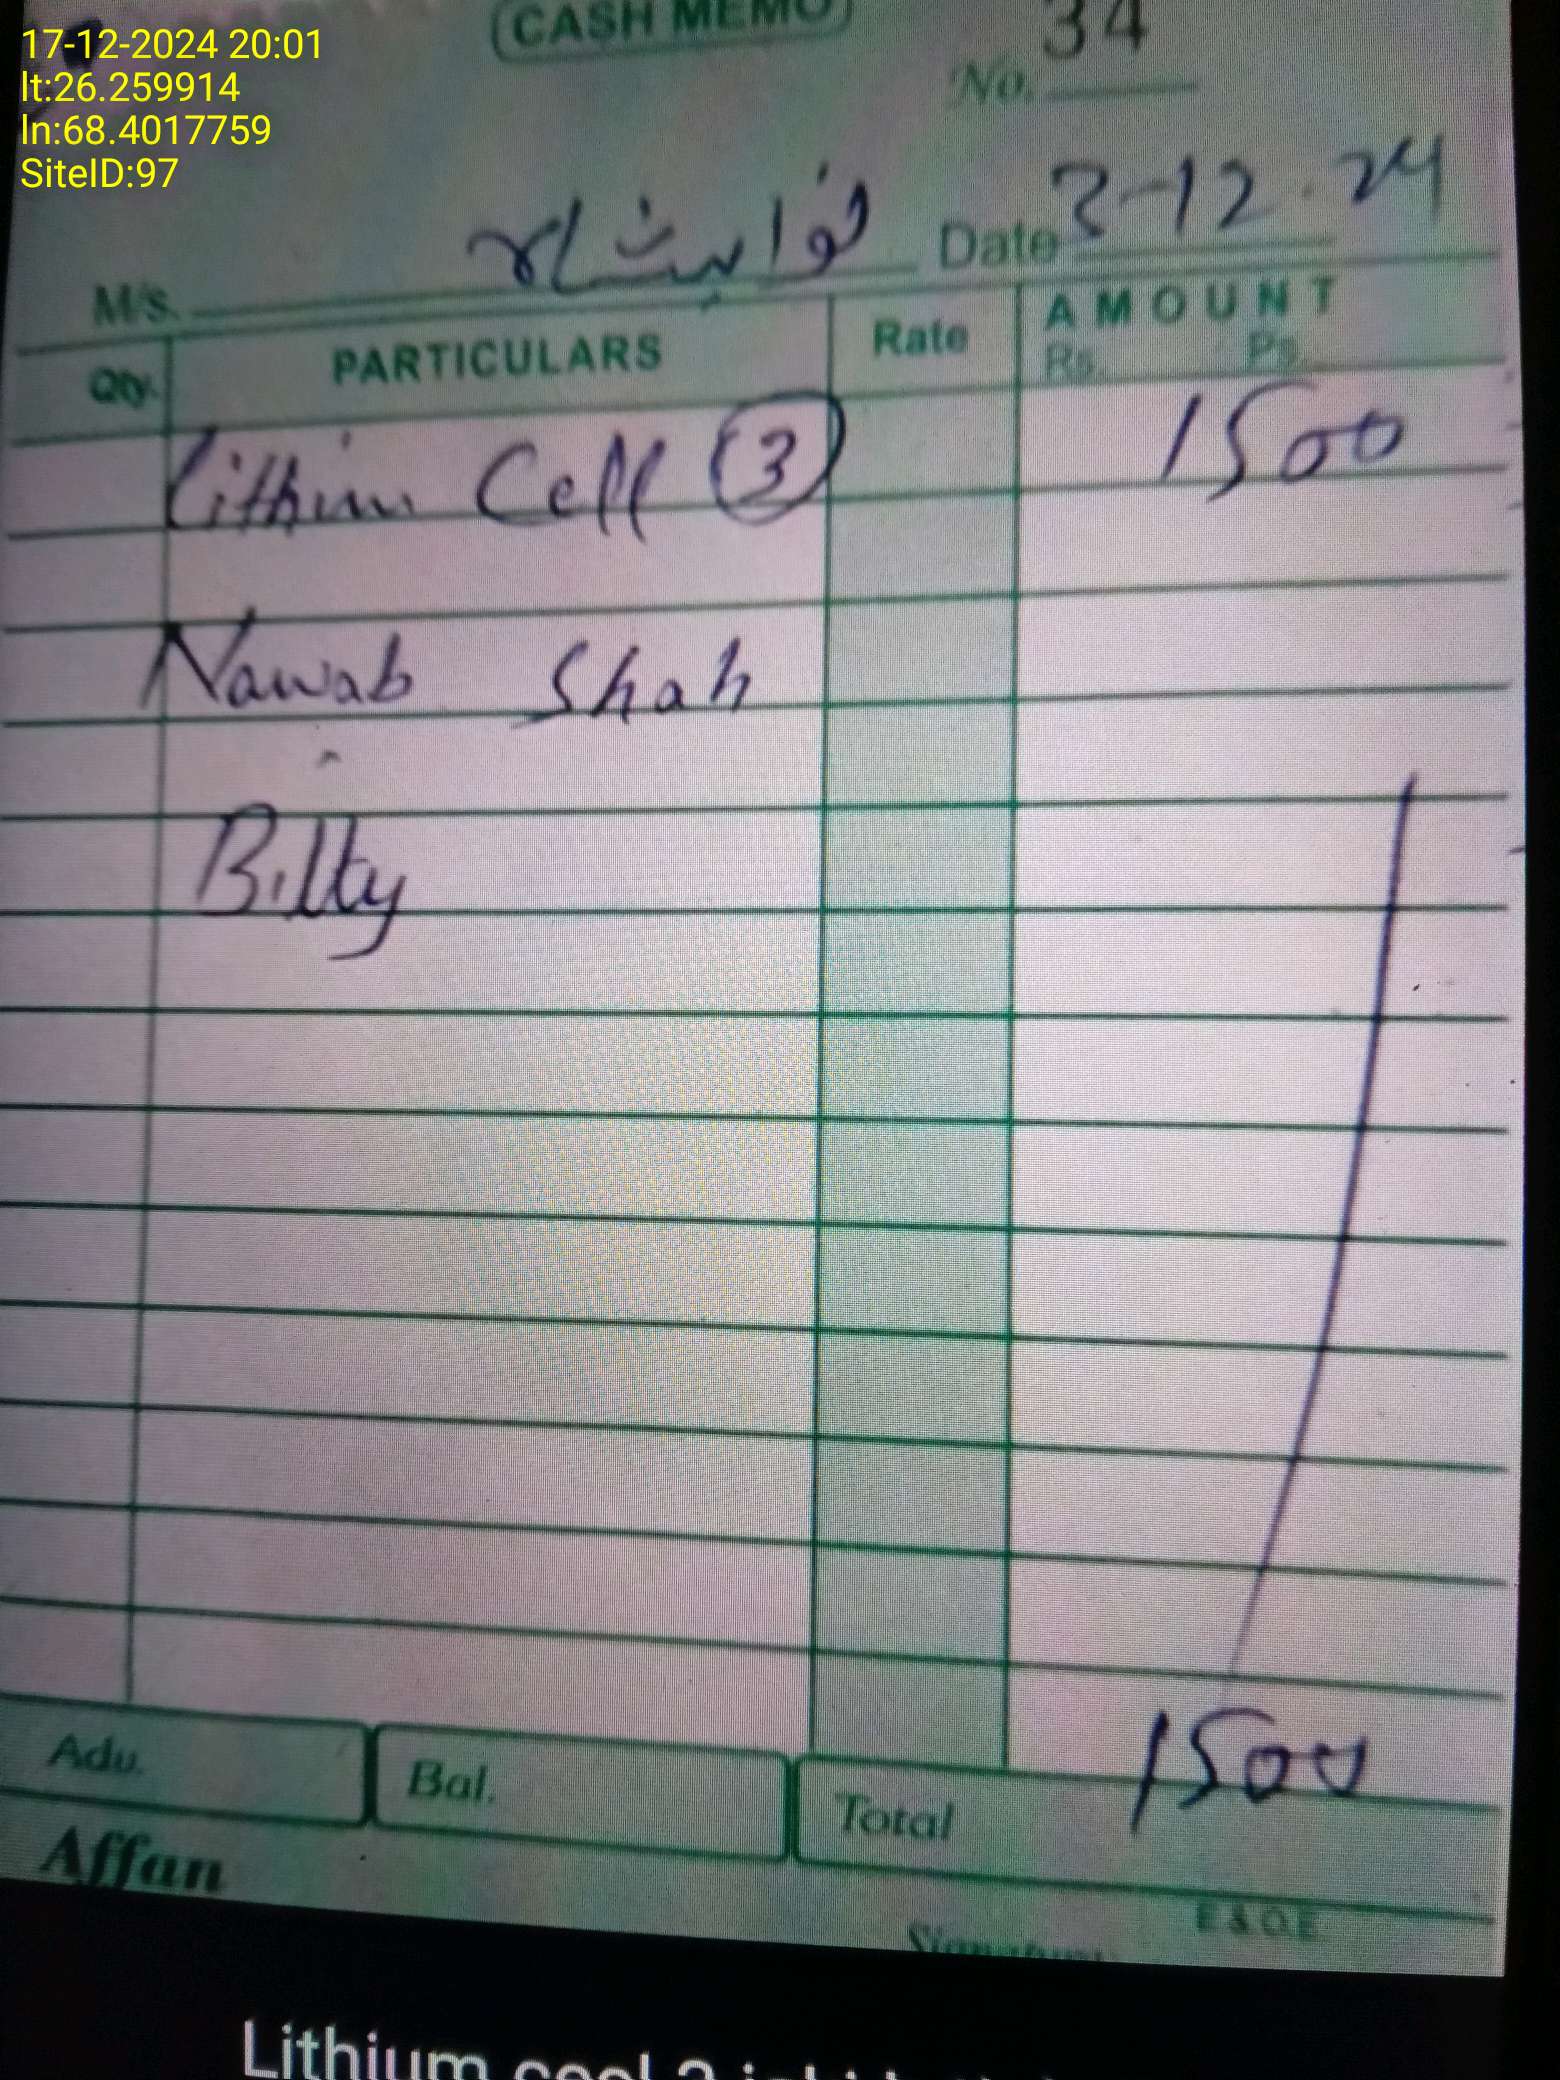 17-12-2024 20:01
lt:26.259914
ln:68.4017759
SiteID:97
CASH MEMO
No. 34
M/s. نوابشاہ Date 3-12-24
Qty. PARTICULARS Rate AMOUNT
Rs. Ps.
Lithim Cell 3 1500
Nawab Shah
Bilty
Adv. Bal. Total 1500
Affan
E & O.E
Signature
Lithium